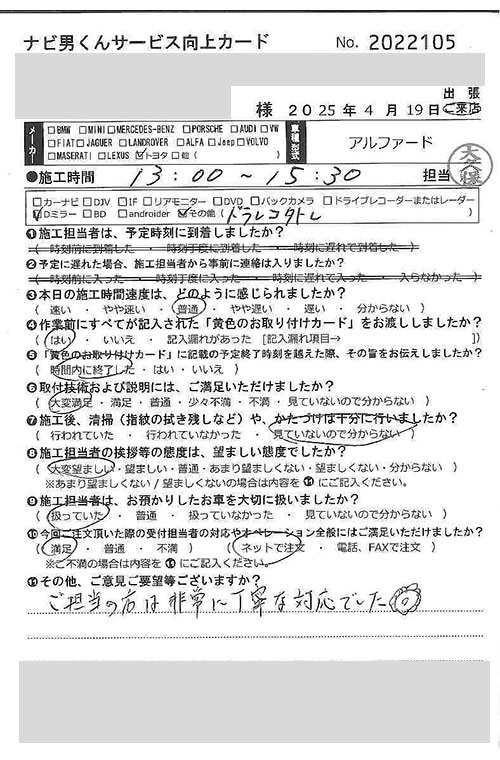 ナビ男くんサービス向上カード No. 2022105
出 張
様 2025年 4月 19日 ご来店
メーカー □BMW □MINI □MERCEDES-BENZ □PORSCHE □AUDI □VW
□FIAT □JAGUER □LANDROVER □ALFA □Jeep □VOLVO
□MASERATI □LEXUS ☑トヨタ □他 ( )
車種型式 アルファード
●施工時間 13:00~15:30 担当 大久保
□カーナビ □DJV □IF □リアモニター □DVD □バックカメラ □ドライブレコーダーまたはレーダー
☑Dミラー □BD □androider ☑その他 ( ドラレコ )
❶施工担当者は、予定時刻に到着しましたか?
( 時刻前に到着した ・ 時刻丁度に到着した ・ 時刻に遅れて到着した )
❷予定に遅れた場合、施工担当者から事前に連絡は入りましたか?
( 時刻前に入った ・ 時刻丁度に入った ・ 時刻に遅れて入った ・ 入らなかった )
❸本日の施工時間速度は、どのように感じられましたか?
( 速い ・ やや速い ・ 普通 ・ やや遅い ・ 遅い ・ 分からない )
❹作業前にすべてが記入された「黄色のお取り付けカード」をお渡ししましたか?
( はい ・ いいえ ・ 記入漏れがあった [記入漏れ項目→ ])
❺「黄色のお取り付けカード」に記載の予定終了時刻を越えた際、その旨をお伝えしましたか?
( 時間内に終了した ・ はい ・ いいえ )
❻取付技術および説明には、ご満足いただけましたか?
( 大変満足 ・ 満足 ・ 普通 ・ 少々不満 ・ 不満 ・ 見ていないので分からない )
❼施工後、清掃(指紋の拭き残しなど)や、かたづけは十分に行いましたか?
( 行われていた ・ 行われていなかった ・ 見ていないので分からない )
❽施工担当者の挨拶等の態度は、望ましい態度でしたか?
( 大変望ましい ・ 望ましい ・ 普通 ・ あまり望ましくない ・ 望ましくない ・ 分からない )
※あまり望ましくない / 望ましくないの場合は内容を ⓫ にご記入ください。
❾施工担当者は、お預かりしたお車を大切に扱いましたか?
( 扱っていた ・ 普通 ・ 扱っていなかった ・ 見ていないので分からない )
❿今回ご注文頂いた際の受付担当者の対応やオペレーション全般にはご満足いただけましたか?
( 満足 ・ 普通 ・ 不満 ) ( ネットで注文 ・ 電話、FAXで注文 )
※ご不満の場合は内容を ⓫ にご記入ください。
⓫その他、ご意見ご要望等ございますか?
ご担当の方は非常に丁寧な対応でした